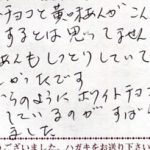 チョコと黄味あんがこん
するとは思ってません
あんもしっとりしていて
かったです
のようにホワイトチョコ
しているのがすば
ました
ございました。ハガキをお送り下さい